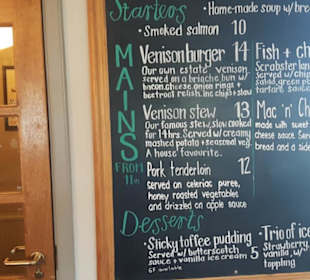 Starters
• Home-made soup w/ bre
• Smoked salmon 10
MAINS
FROM
11am
Venison burger 14
Our own estate venison,
served on a brioche bun w/
bacon, cheese, onion rings +
beetroot relish, inc chips + slaw
Venison stew 13
Our famous stew, slow cooked
for 14hrs. Served w/ creamy
mashed potato + seasonal veg.
A house favourite.
Pork tenderloin 12
served on celeriac puree,
honey roasted vegetables
and drizzled on apple sauce
Fish + ch
Scrabster lan
Served w/ chips
salad, green p
tartare sauc
Mac 'n' Ch
made with sweet
cheese sauce Ser
bread and a side
Desserts
• Sticky toffee pudding 5
Served w/ butterscotch
sauce + vanilla ice cream
GF available
• Trio of ice
Strawberry,
vanilla, w/
toppling